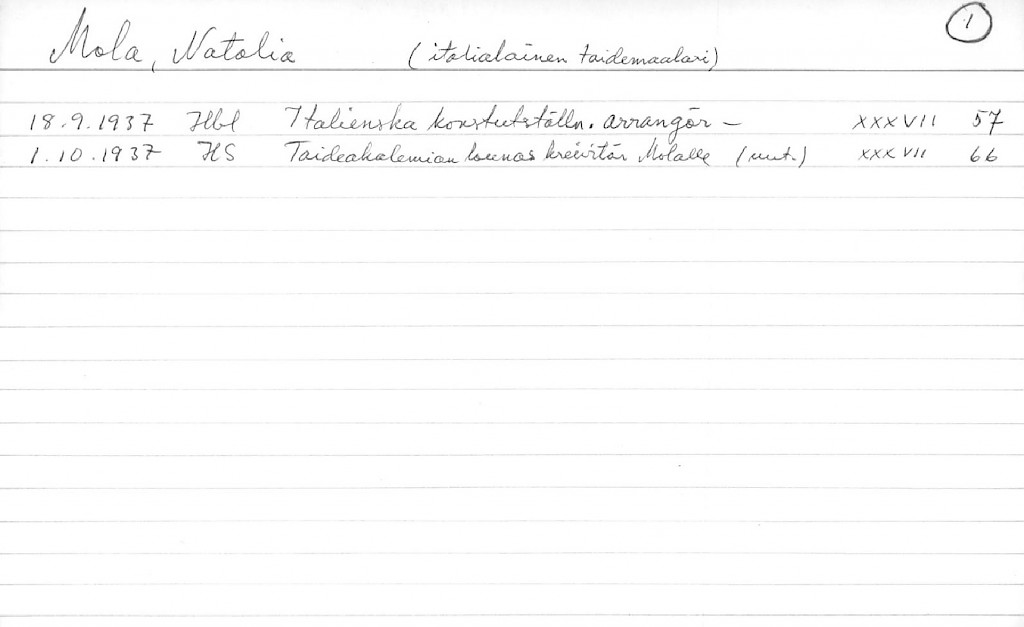 Mola, Natalia (italialainen taidemaalari) 1
18.9.1937 Hbl Italienska konstutställn. arrangör – XXXVII 57
1.10.1937 HS Taideakatemian lounas kreivitär Molalle (uut.) XXXVII 66